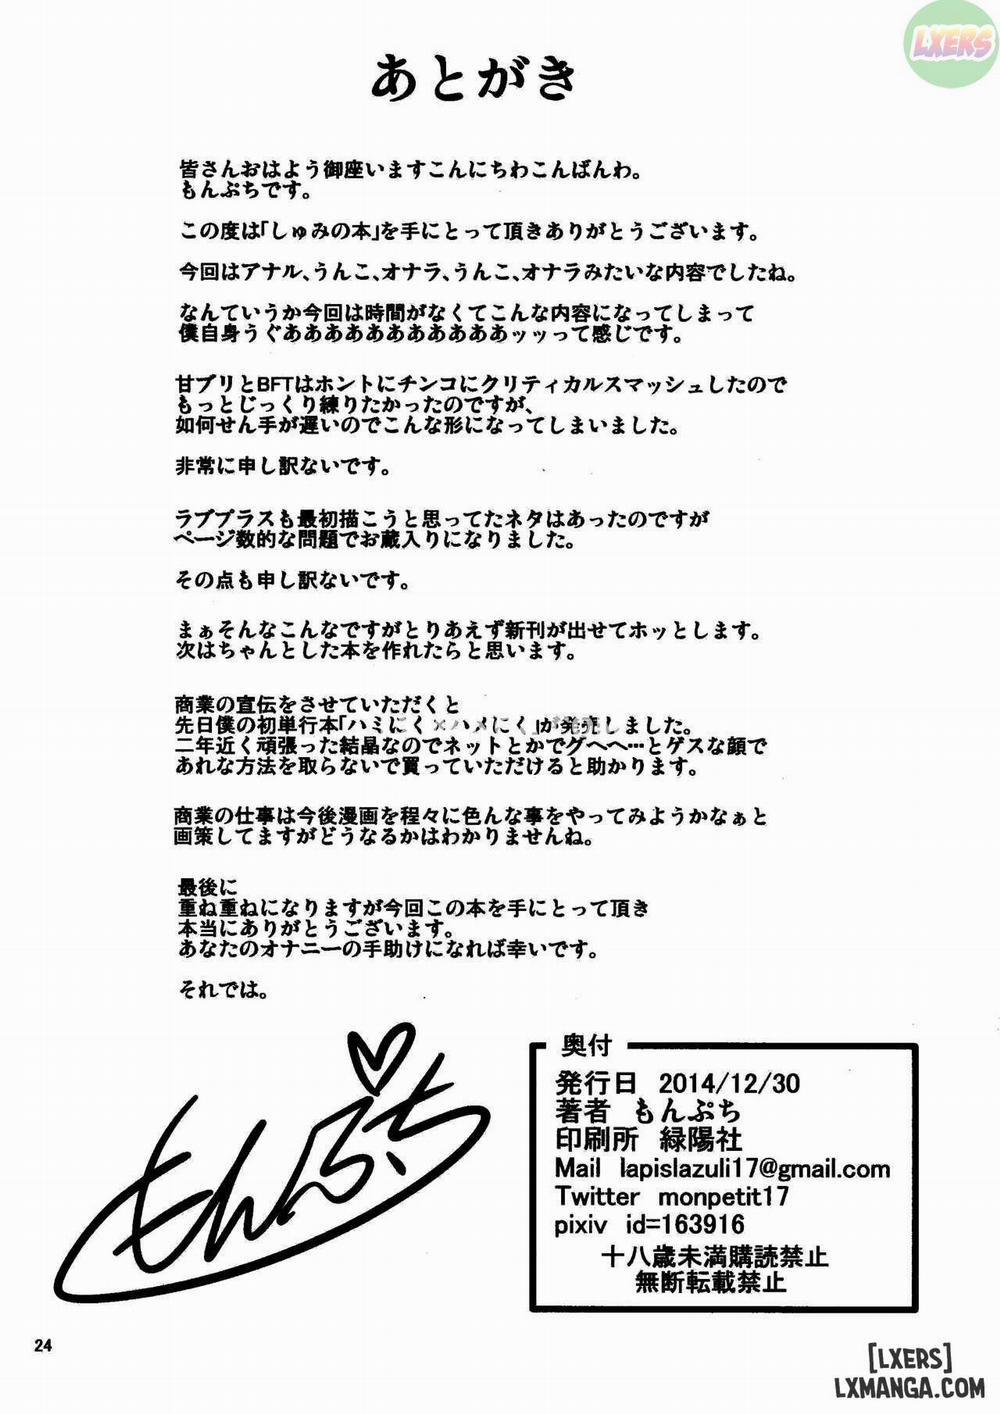 LXERS
あとがき
皆さんおはよう御座いますこんにちわこんばんわ。
もんぷちです。
この度は「しゅみの本」を手にとって頂きありがとうございます。
今回はアナル、うんこ、オナラ、うんこ、オナラみたいな内容でしたね。
なんていうか今回は時間がなくてこんな内容になってしまって
僕自身うぐああああああああああああッッって感じです。
甘ブリとBFTはホントにチンコにクリティカルスマッシュしたので
もっとじっくり練りたかったのですが、
如何せん手が遅いのでこんな形になってしまいました。
非常に申し訳ないです。
ラブプラスも最初描こうと思ってたネタはあったのですが
ページ数的な問題でお蔵入りになりました。
その点も申し訳ないです。
まぁそんなこんなですがとりあえず新刊が出せてホッとします。
次はちゃんとした本を作れたらと思います。
商業の宣伝をさせていただくと
先日僕の初単行本「ハミにく×ハメにく」が発売しました。
二年近く頑張った結晶なのでネットとかでグへへ…とゲスな顔で
あれな方法を取らないで買っていただけると助かります。
商業の仕事は今後漫画を程々に色んな事をやってみようかなぁと
画策してますがどうなるかはわかりませんね。
最後に
重ね重ねになりますが今回この本を手にとって頂き
本当にありがとうございます。
あなたのオナニーの手助けになれば幸いです。
それでは。
もんぷち
奥付
発行日 2014/12/30
著者 もんぷち
印刷所 緑陽社
Mail lapislazuli17@gmail.com
Twitter monpetit17
pixiv id=163916
十八歳未満購読禁止
無断転載禁止
24
[LXERS]
LXMANGA.COM